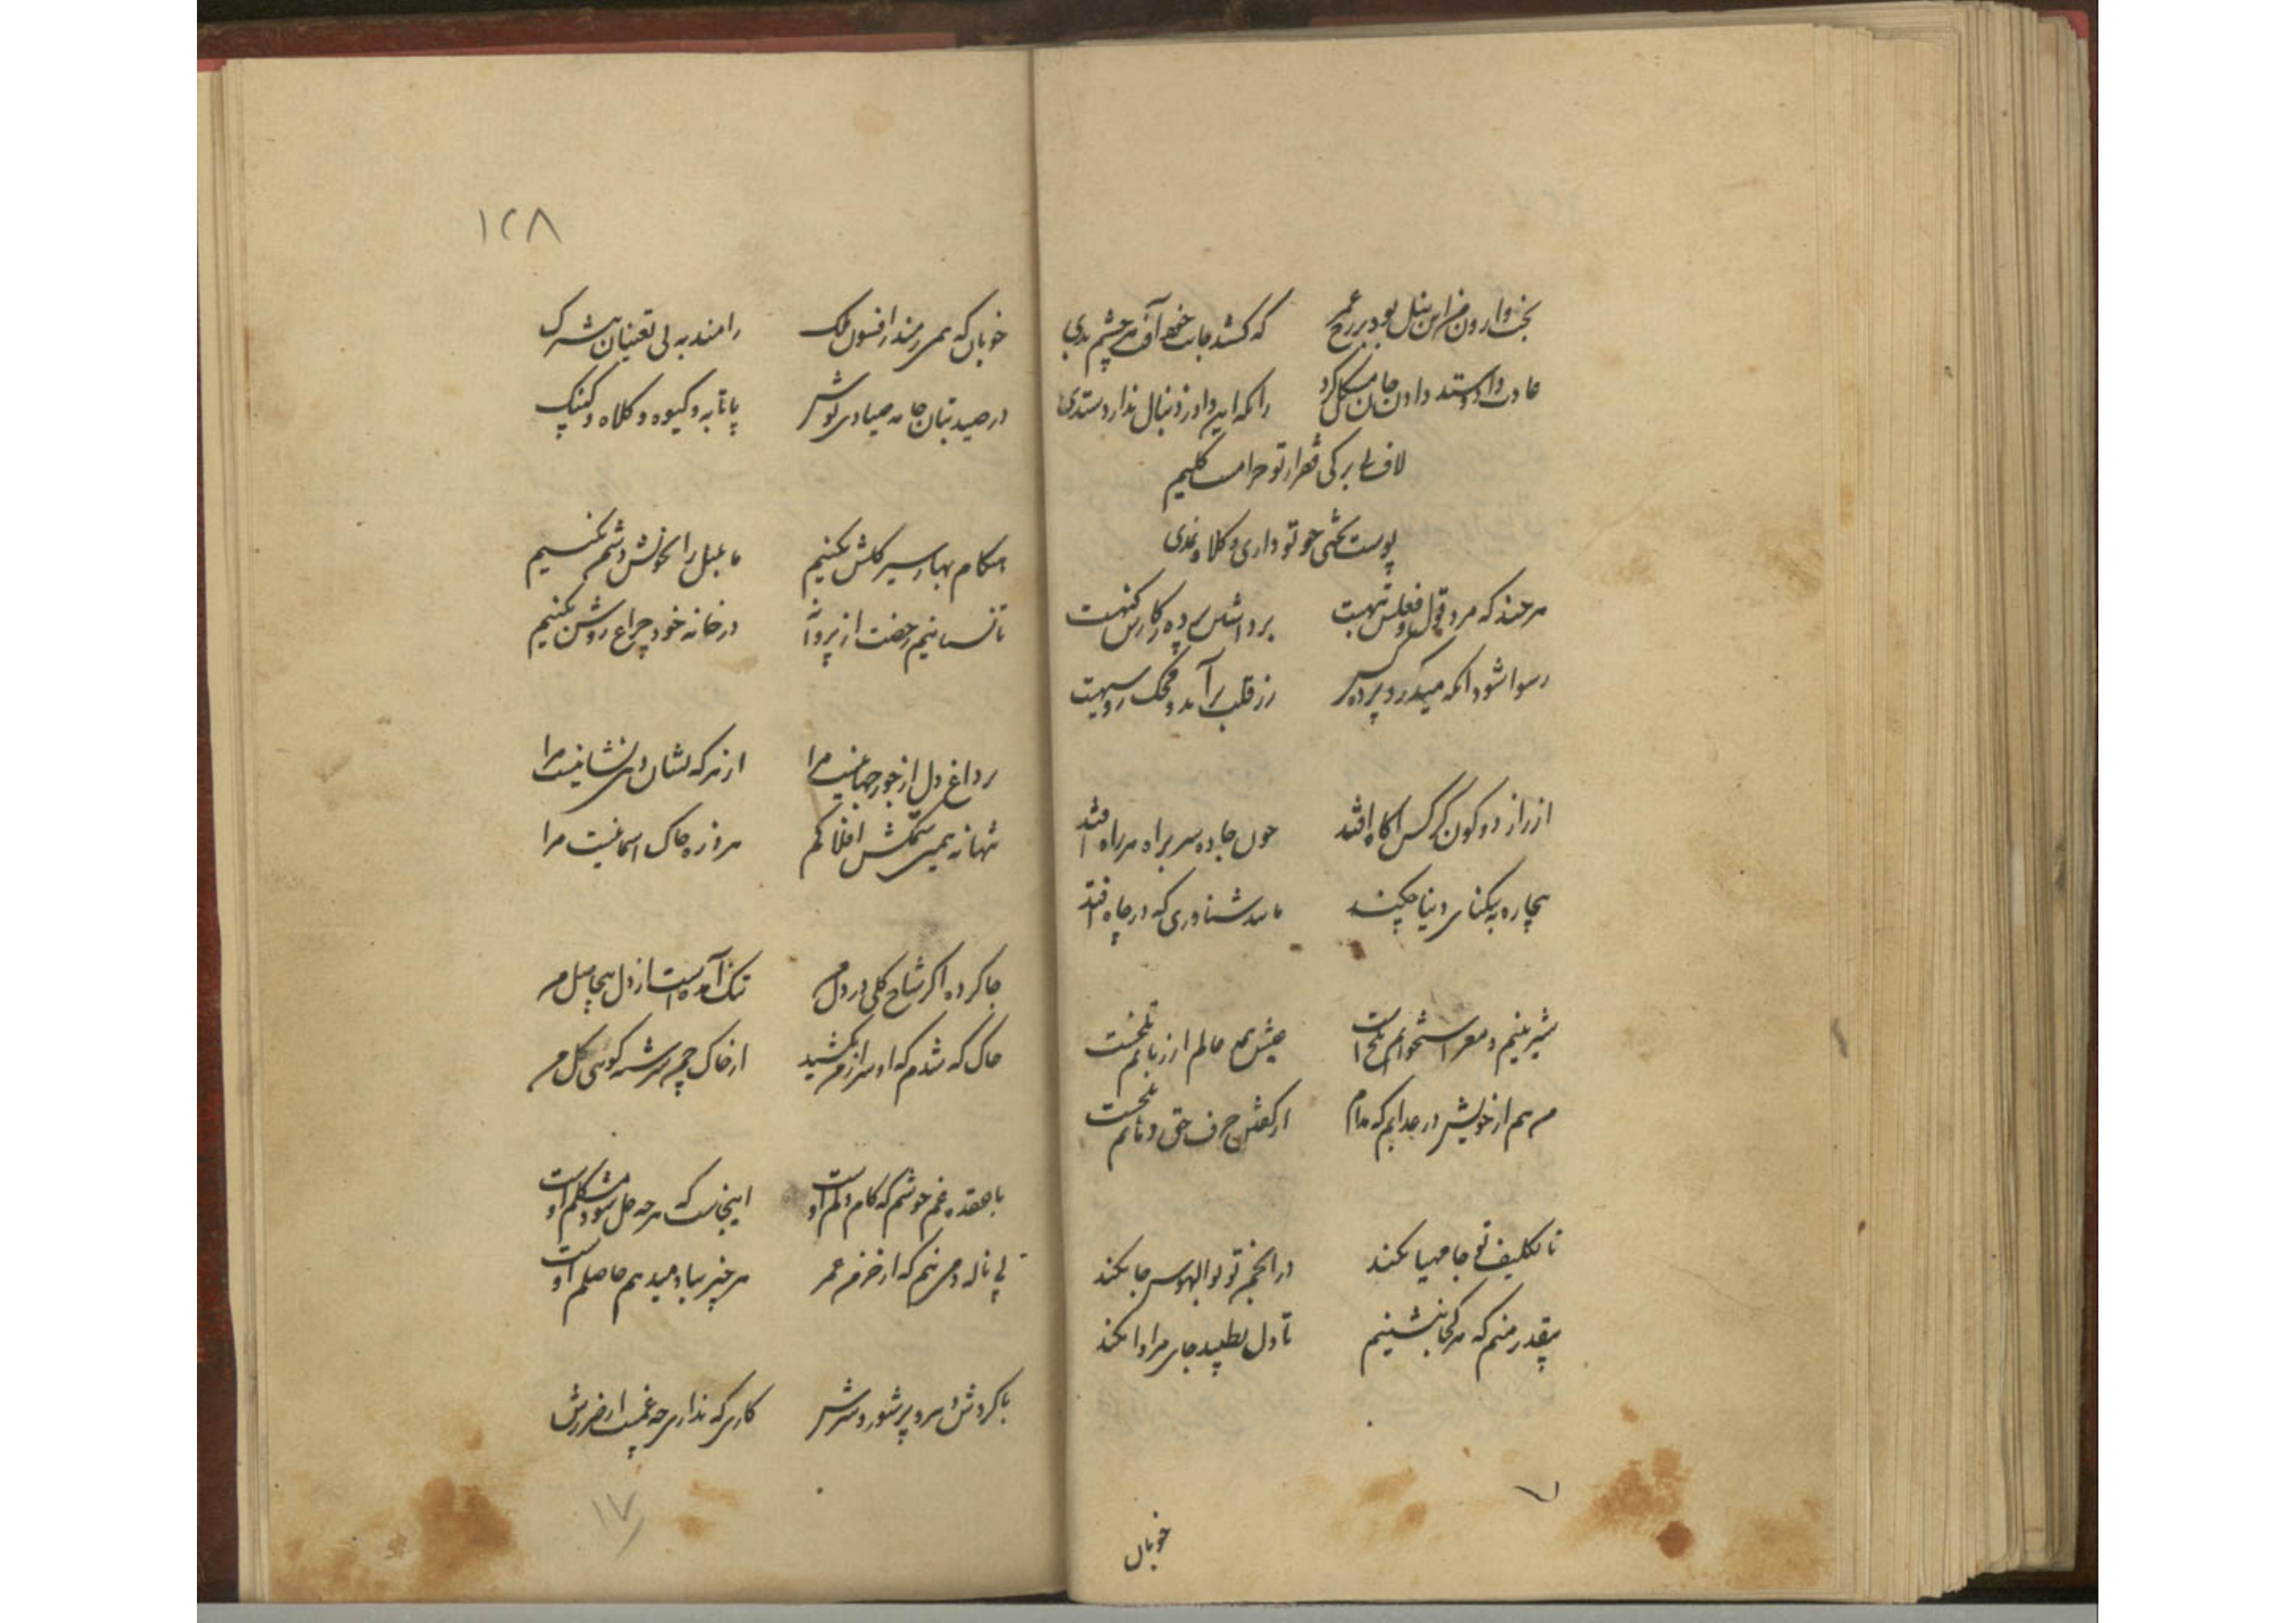 بخت وارون من این نیل بود بر رخ عمر که کشد جانب خود آفت هر چشم بدی
عادت داد و ستد دادن جان مشکل کرد زانکه این داد ز دنبال ندارد ستدی
لاف بی برگی فقر از تو حرامست کلیم
پوست تختی چو تو داری و کلاه نمدی
هر چند که مرد قول و فعلش تبهست برداشتن پرده ز کارش گنهست
رسوا شود آنکه میدرد پرده کس زر قلب برآمد و محک روسیهست
از راز دو کون گر کس آگاه افتد چون جاده سر براه هر راه افتد
بیچاره به تنگنای دنیا چکند مانند شناوری که در چاه افتد
شیرینیم و مغز استخوانم تلخ است عیش همه عالم از زبانم تلخست
هم از خویش در عذابم که مدام از گفتن حرف حق دهانم تلخست
تا تکلیف تو جا مهیا نکند در انجمن تو بوالهوس جا نکند
بیقدر منم که هر کجا بنشینم تا دل نطپید جای مرا وا نکند
خوبان
۱۲۸
خوبان که همی رمند از افسون ملک رامند به بی تعینان
در صید بتان جامه صیادی پوش پاتابه و گیوه و کلاه و کپنک
هنگام بهار سیر گلشن نکنیم ما بلبل را بخویش دشمن نکنیم
تا نستانیم رخصت از پروانه در خانه خود چراغ روشن نکنیم
داغ دل از جور جهانیست مرا از هر که نشان دهی نشانیست مرا
تنها نه همین ستمکش افلاکم هر ذره خاک آسمانیست مرا
جا کرده اگر شاخ گلی در دل من تنگ آمده است از دل بیحاصل من
خاک که شدم که او سر از من نکشید از خاک چه سرشته گویی گل من
با عقده غم خوشم که کام دلم اوست اینجاست که هر چه حل شود مشکلم اوست
بی ناله دمی نیم که از خرمن عمر هر چیز بباد میدهم حاصلم اوست
با گردش دهر و پر شور و شرش کاری که نداری چه غمست از ضررش
۱۷